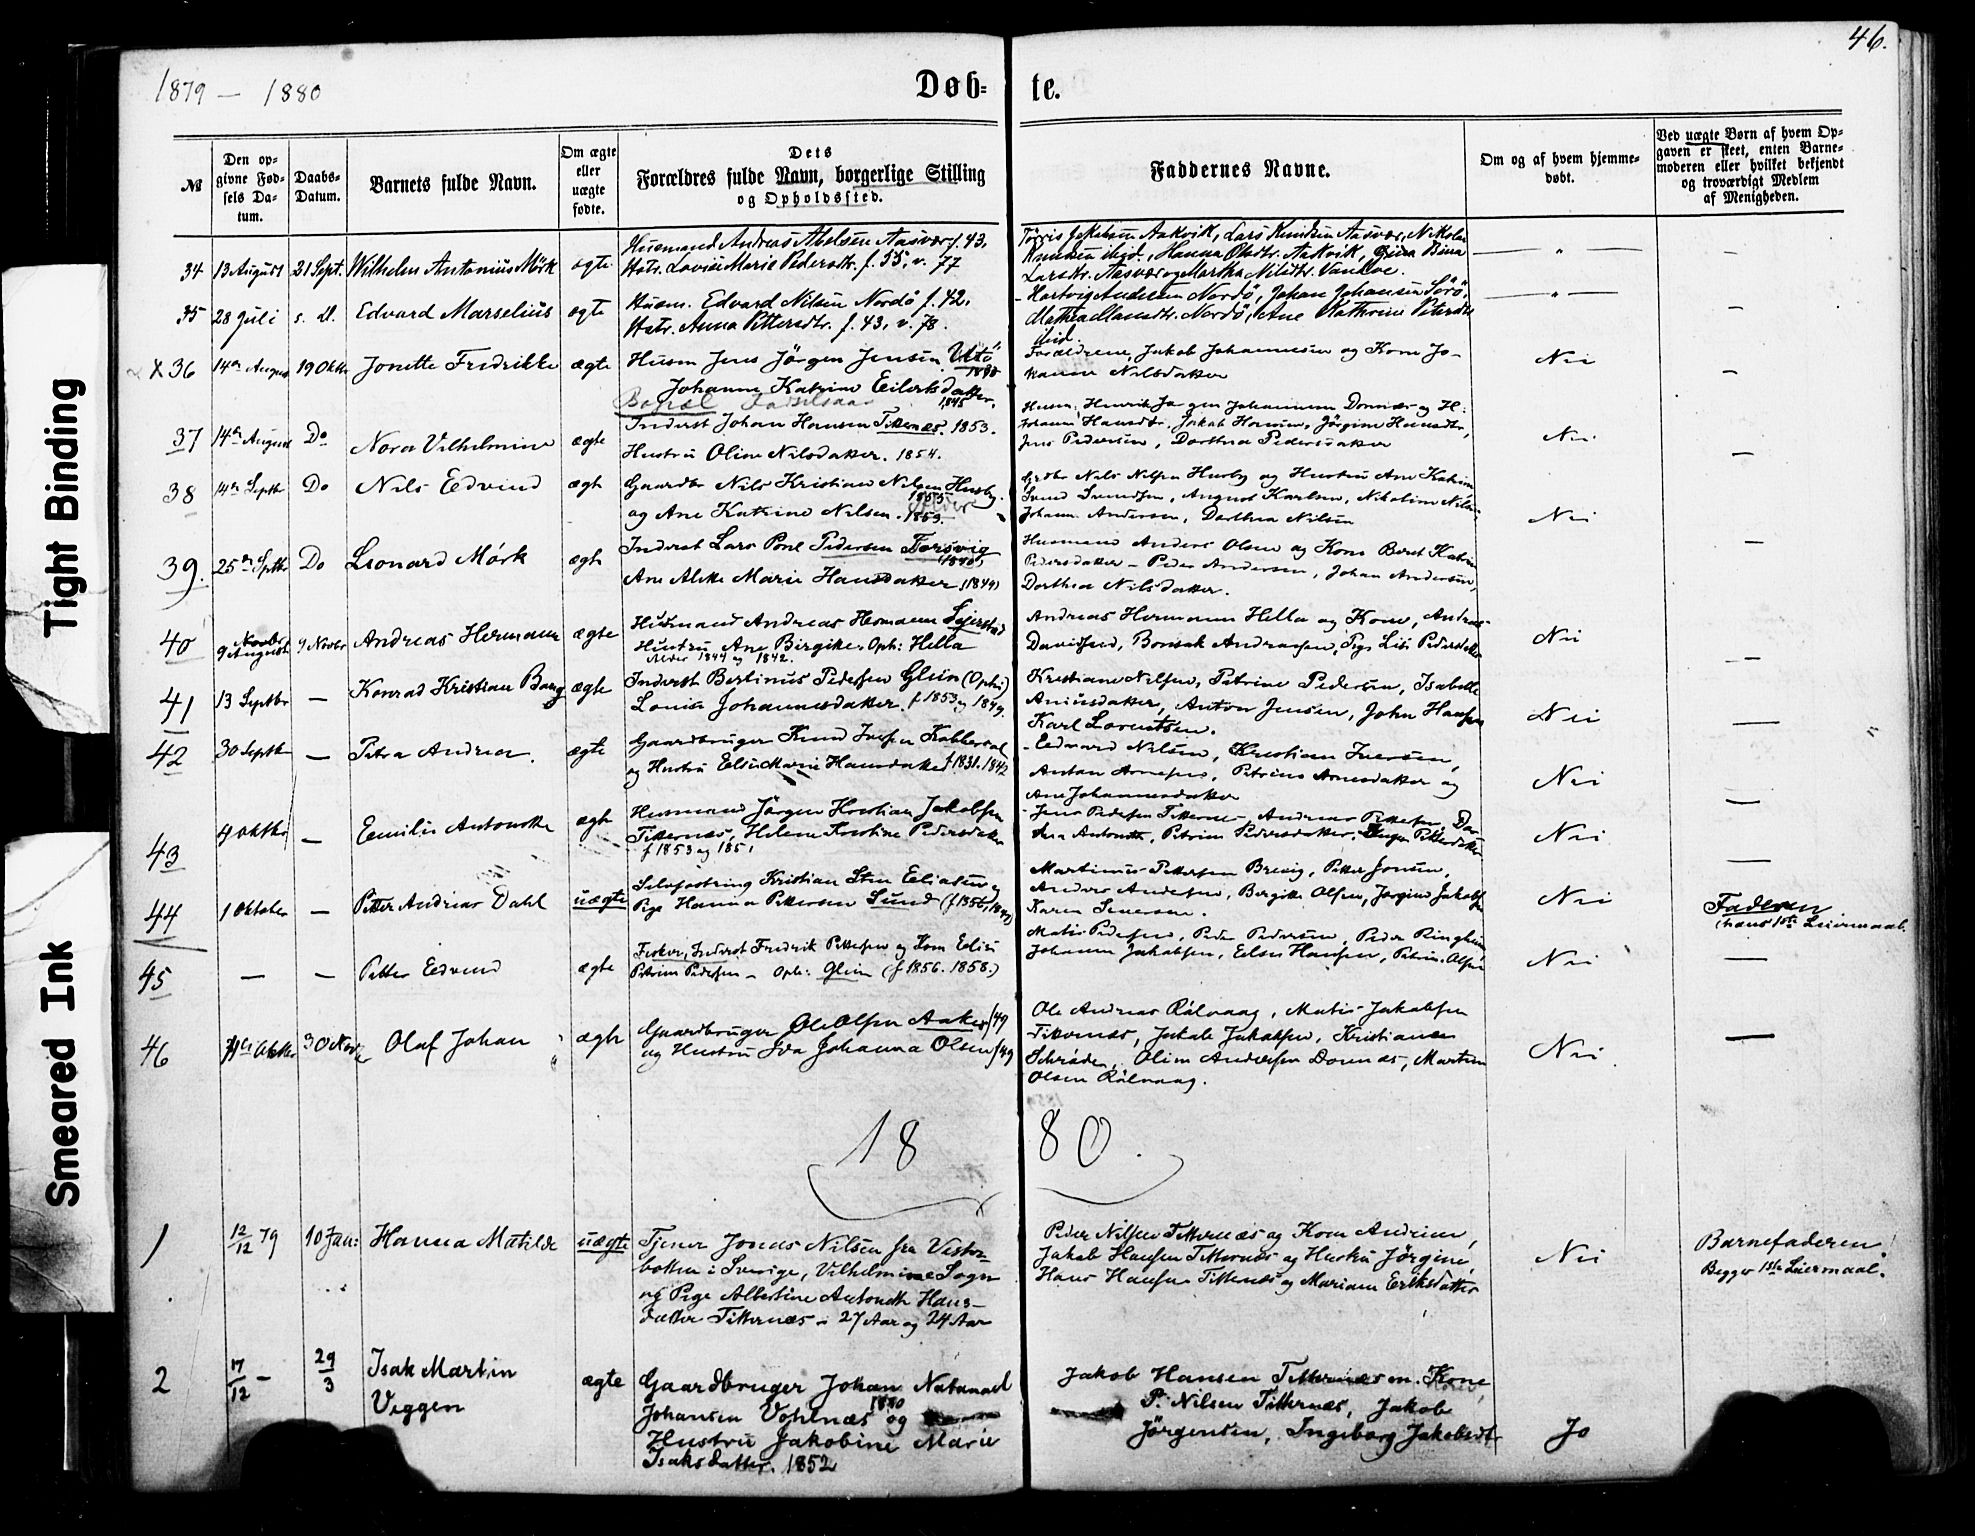 46.
1879 — 1880
Døb-
te.
Tight Binding
Smeared Ink
№
Den opgivne Fødsels Datum.
Daabs-Datum.
Barnets fulde Navn.
Om ægte eller uægte fødte.
Dets Forældres fulde Navn, borgerlige Stilling og Opholdssted.
Faddernes Navne.
Om og af hvem hjemmedøbt.
Ved uægte Børn af hvem Opgaven er skeet, enten Barnemoderen eller hvilket bekjendt og troværdigt Medlem af Menigheden.
34 13 August 21 Sept. Wilhelm Antonius Mörk ægte
Husmand Andreas Abelsen Aasvær f. 43.
Hstr. Lovise Marie Pedersdtr. f. 55, v. 77
Aakvik, Lars Knudsen Aasvær, Nikolai
Knudsen ibid., Hanna Olsdtr. Aakvik,
Larsdtr. Aasvær og Martha Nilsdtr. Vandve.
35 28 Juli s. D. Edvard Marselius ægte
Husm. Edvard Nilsen Nordö f. 42.
Hstr. Anna Pettersdtr. f. 43, v. 78.
Hartvig Andersen Nordö, Johan Johansen Sörö,
Mathea Hansdtr. Nordö, Ane Kathrine
ibid.
X 36 14de August 19 Oktbr Jonette Fredrikke ægte
Husm Jens Jörgen Jensen
Johanne Katrine Eilertsdatter.
1845
Forældrene, Jakob Johannesen og Kone Jo-
hanna Nilsdatter
Nei —
37 14de August Do Nora Vilhelmine ægte
Inderst Johan Hansen Titternæs. 1853.
Hustru Oline Nilsdatter. 1854.
Husm. Henrik Jörgen Johannesen Dønnæs og H:
Johanna Hansdtr. Jakob Hansen, Jörgine Hansdtr,
Jens Pedersen, Dorthea Pedersdatter
Nei —
38 14de Septbr Do Nils Edvind ægte
Gaardbr Nils Kristian Nilsen Husby.
1855
og Ane Katrine Nilsen. 1859.
Grdbr Nils Nilsen Husby og Hustru Ane Katrine
August Karlsen, Nikoline
Johan Andersen, Dorthea Nilsen
Nei
39. 25de Septbr Do Leonard Mörk ægte
Inderst Lars Poul Pedersen Forsvig
(1840)
Ane Alette Marie Hansdatter (1849)
Husmand Anders Olsen og Kone Beret Katrine
Pedersdatter — Peder Andersen, Johan Andersen,
Dorthea Nilsdatter.
—
40 9 August 9 Novbr Andreas Hermann ægte
Husmand Andreas Hermann
Hustru Ane Birgitte. Oph: Hella
Alder 1844 og 1842.
Andreas Hermann Hella og Kone,
Nei
41 13 Septbr — Konrad Kristian Bang ægte
Inderst Bertinus Pedersen Glein (Oph:)
Lovise Johannesdatter. f 1853 og 1849.
Kristiane Nilsen, Petrine Pedersen, Isabelle
Anton Jensen, John Hansen
Karl Lorentsen.
Nei —
42 30 Septbr — Petra Andrea. ægte
Gaardbruger Knud Iversen Kobberdal
og Hustru Else Marie Hansdatter f 1831. 1842
Edvard Nilsen, Kristian Iversen,
Anton Arnesen, Petrine Arnesdatter og
Ane Johannesdatter
Nei —
43 4 Oktbr — Emilie Antonette ægte
Husmand Jörgen Kristian Jakobsen
Titternæs, Helene Kristine Pedersdatter
f 1853 og 1851
Jens Pedersen Titternæs, Andreas Pettersen, Dor-
thea Antonette, Petrine Pedersdatter,
Nei —
44 1 Oktober — Petter Andreas Dahl uægte
Kristian Sten Eliasen og
Pige Hanna Pettersen Lund (f 1856,
Martinus Pettersen Breivig, Petter Jonsen,
Anders Andersen, Birgitte Olsen, Jörgine Jakobsen
Karen
Nei
Faderen
(hans 1ste Leiermaal.
45 — — Petter Edvind ægte
Fisker, Inderst Fredrik Pettersen og Kone Elise
Petrine Pedersen — Oph: Glein (f 1856. 1858.)
Mathis Pedersen, Peder Pedersen, Peder Ringheim
Johanna Jakobsen, Else Hansen, Petrine Olsen
Nei —
46 Oktbr 30 Novbr Olaf Johan ægte
Gaardbruger Ole Olsen Aaker f 49
og Hustru Ida Johanna Olsen f 49
Ole Andreas Rølvaag, Mathis Jakobsen
Titternæs, Jakob Jakobsen, Kristiane
Schrøder, Oline Andersen Dønnæs, Martin
Olsen Rølvaag.
Nei —
18
80.
1 12/12 79 10 Jan: Hanna Matilde uægte
Tjener Jonas Nilsen fra Vester-
botten i Sverige, Vilhelmine Sogn
og Pige Albertine Antonette Hans-
datter Titternæs — 27 Aar og 24 Aar
Peder Nilsen Titternæs og Kone Andrine,
Jakob Hansen Titternæs og Hustru Jørgine,
Hans Hansen Titternæs og Mariane Eriksdatter
Nei
Barnefaderen!
Begges 1ste Leiermaal.
2 17/12 — 29/3 Isak Martin
Viggen
ægte
Gaardbruger Johan Natanael
Johansen Vohlnæs og
Hustru Jakobine Marie
Isaksdatter. 1852
Jakob Hansen Titternæs m. Kone
P. Nilsen Titternæs, Jakob
Jörgensen, Ingeborg Jakobsdtr
Jo